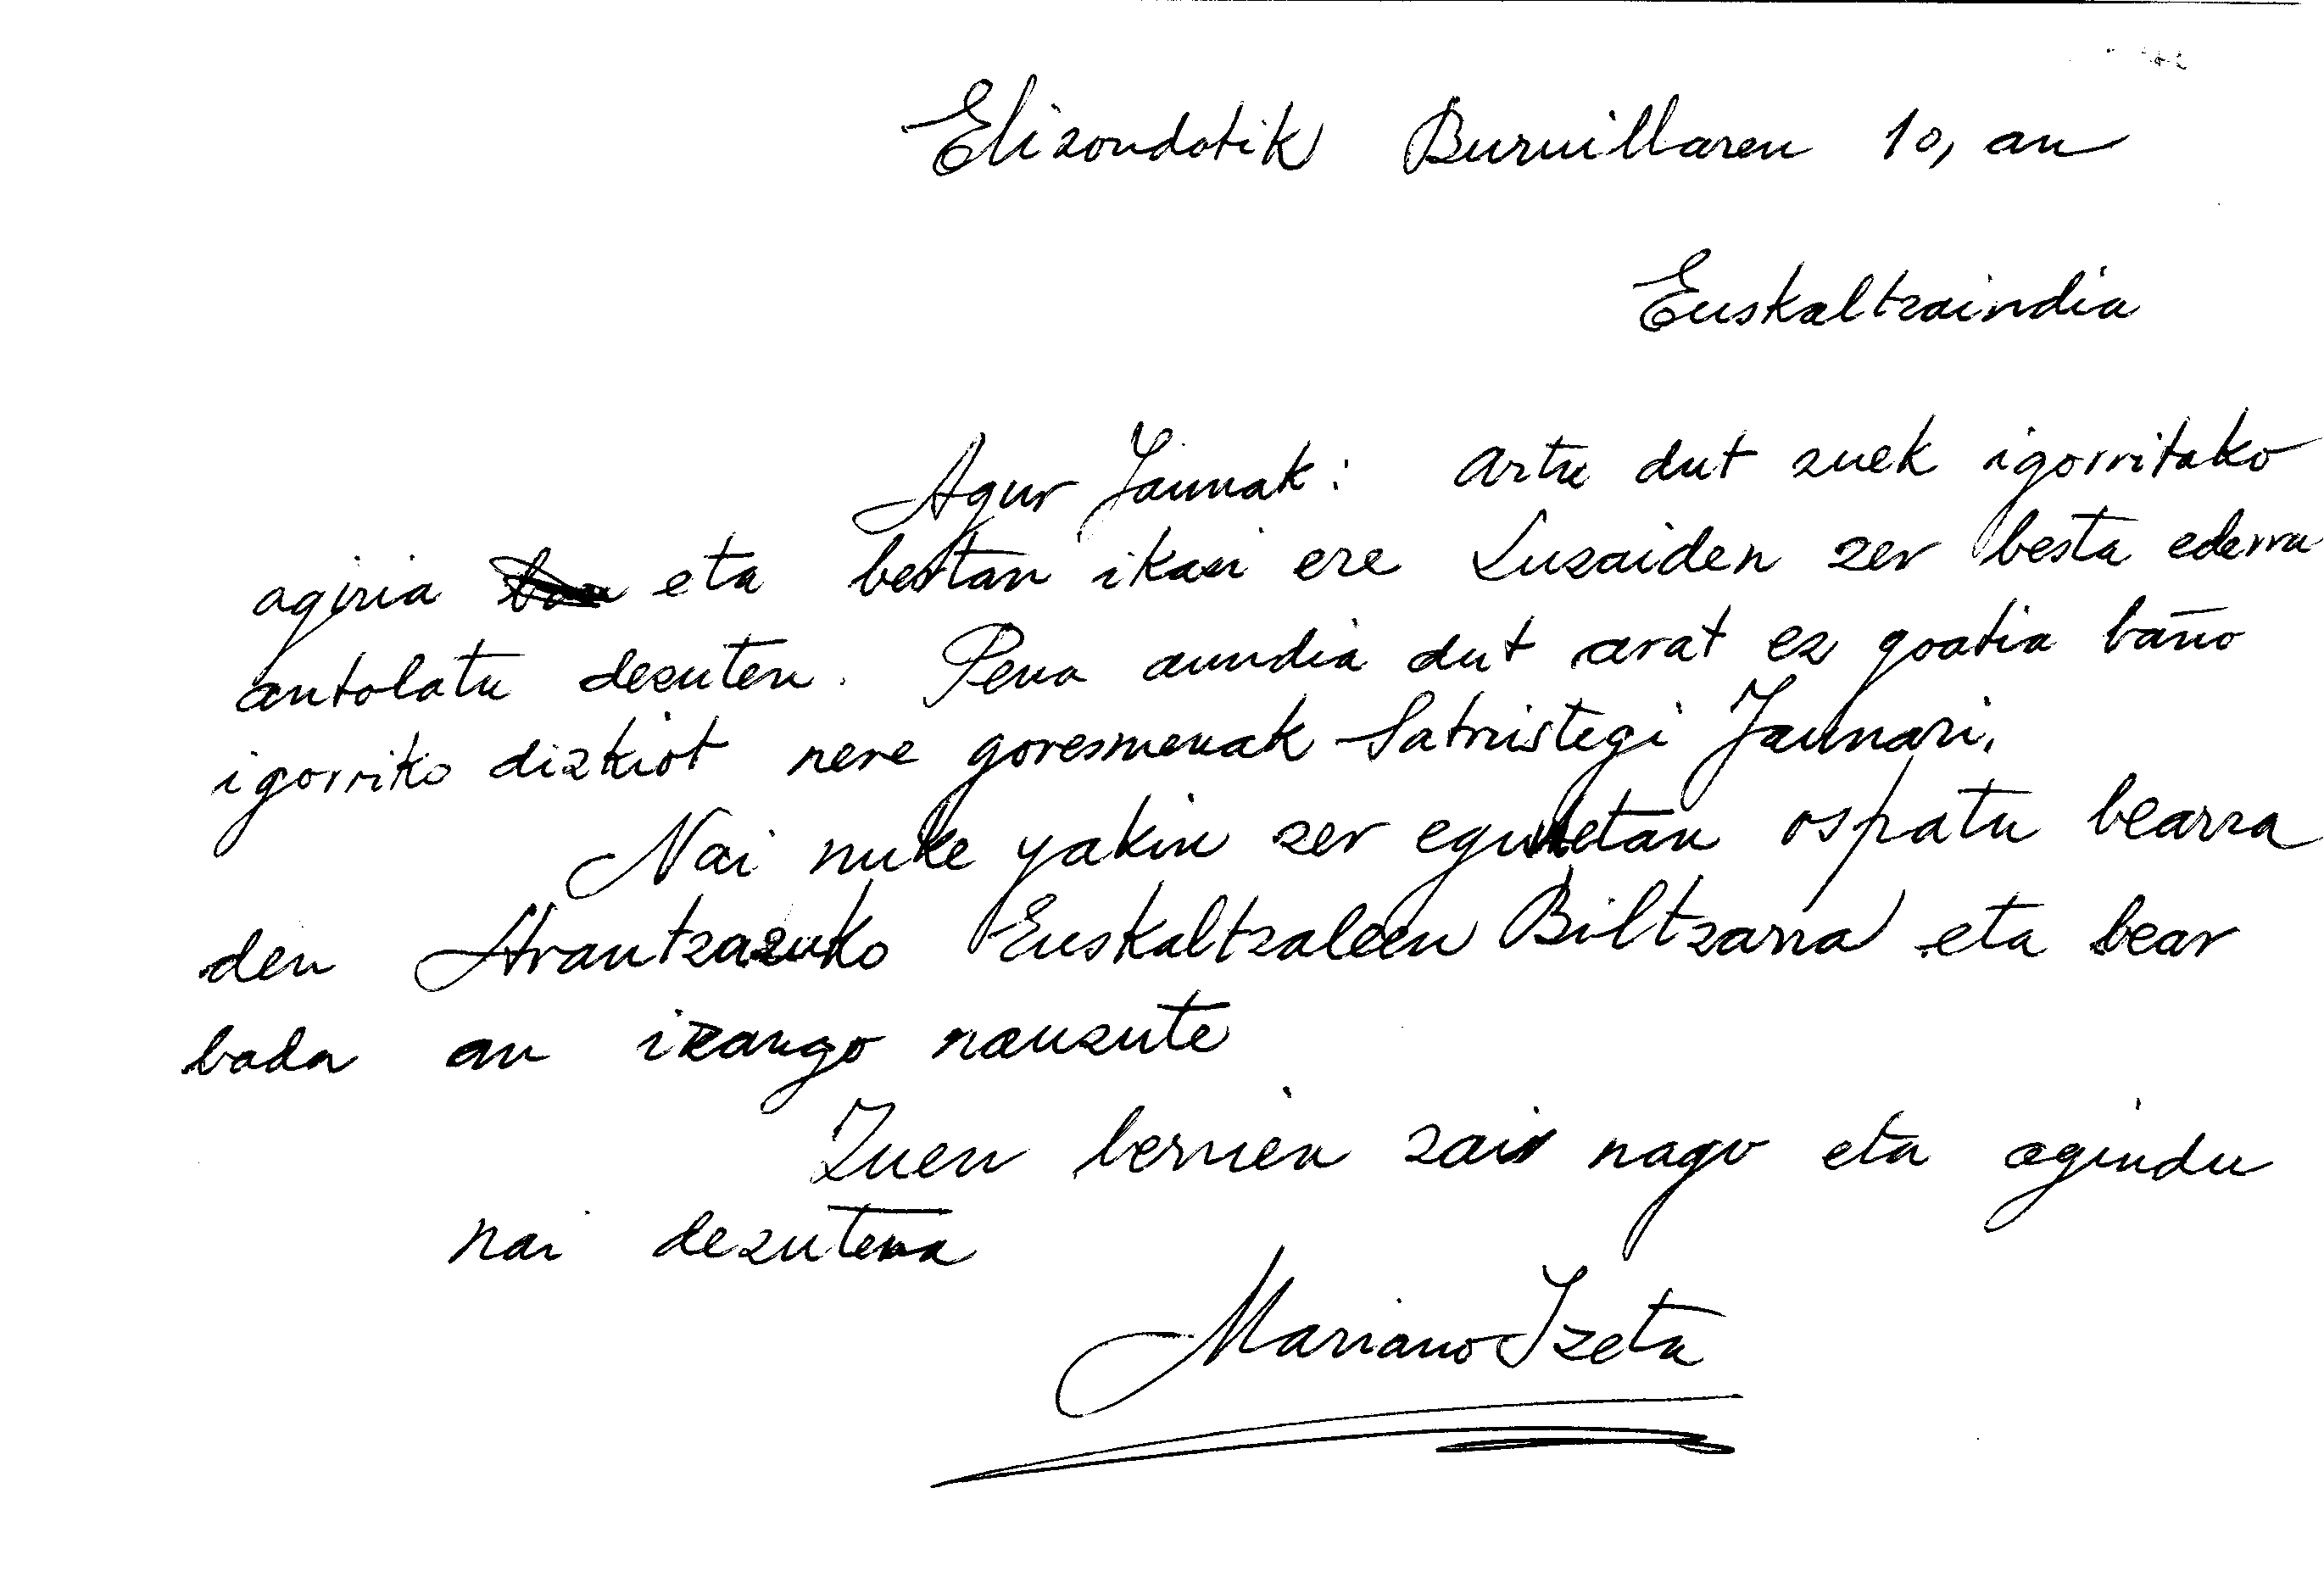 Elizondotik Buruillaren 10, an
Euskaltzaindia
Agur Jaunak: artu dut zuek igorritako
agiria eta bertan ikasi ere Luzaiden zer besta ederra
antolatu dezuten. Pena aundia dut arat ez goatia baño
igorriko dizkiot nere goresmenak Satrustegi Jaunari.
Nai nuke yakin zer egunetan ospatu bearra
den Arantzazuko Euskaltzaleen Biltzarra eta bear
bada an izango nauzute
Zuen berrien zain nago eta agindu
nai dezutena
Mariano Izeta